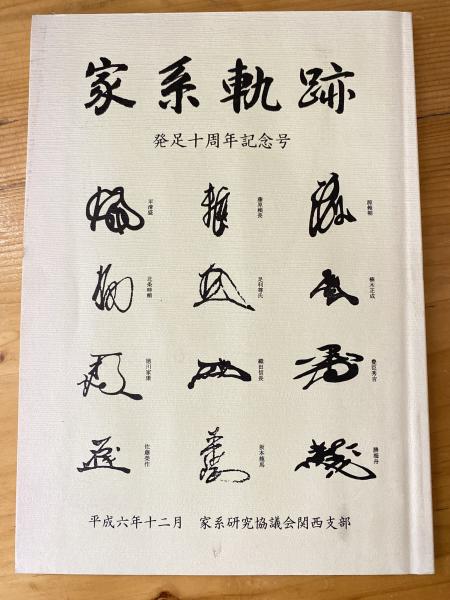 家系軌跡
発足十周年記念号
平清盛
藤原頼長
源頼朝
北条時頼
足利尊氏
楠木正成
徳川家康
織田信長
豊臣秀吉
佐藤栄作
坂本龍馬
勝海舟
平成六年十二月 家系研究協議会関西支部